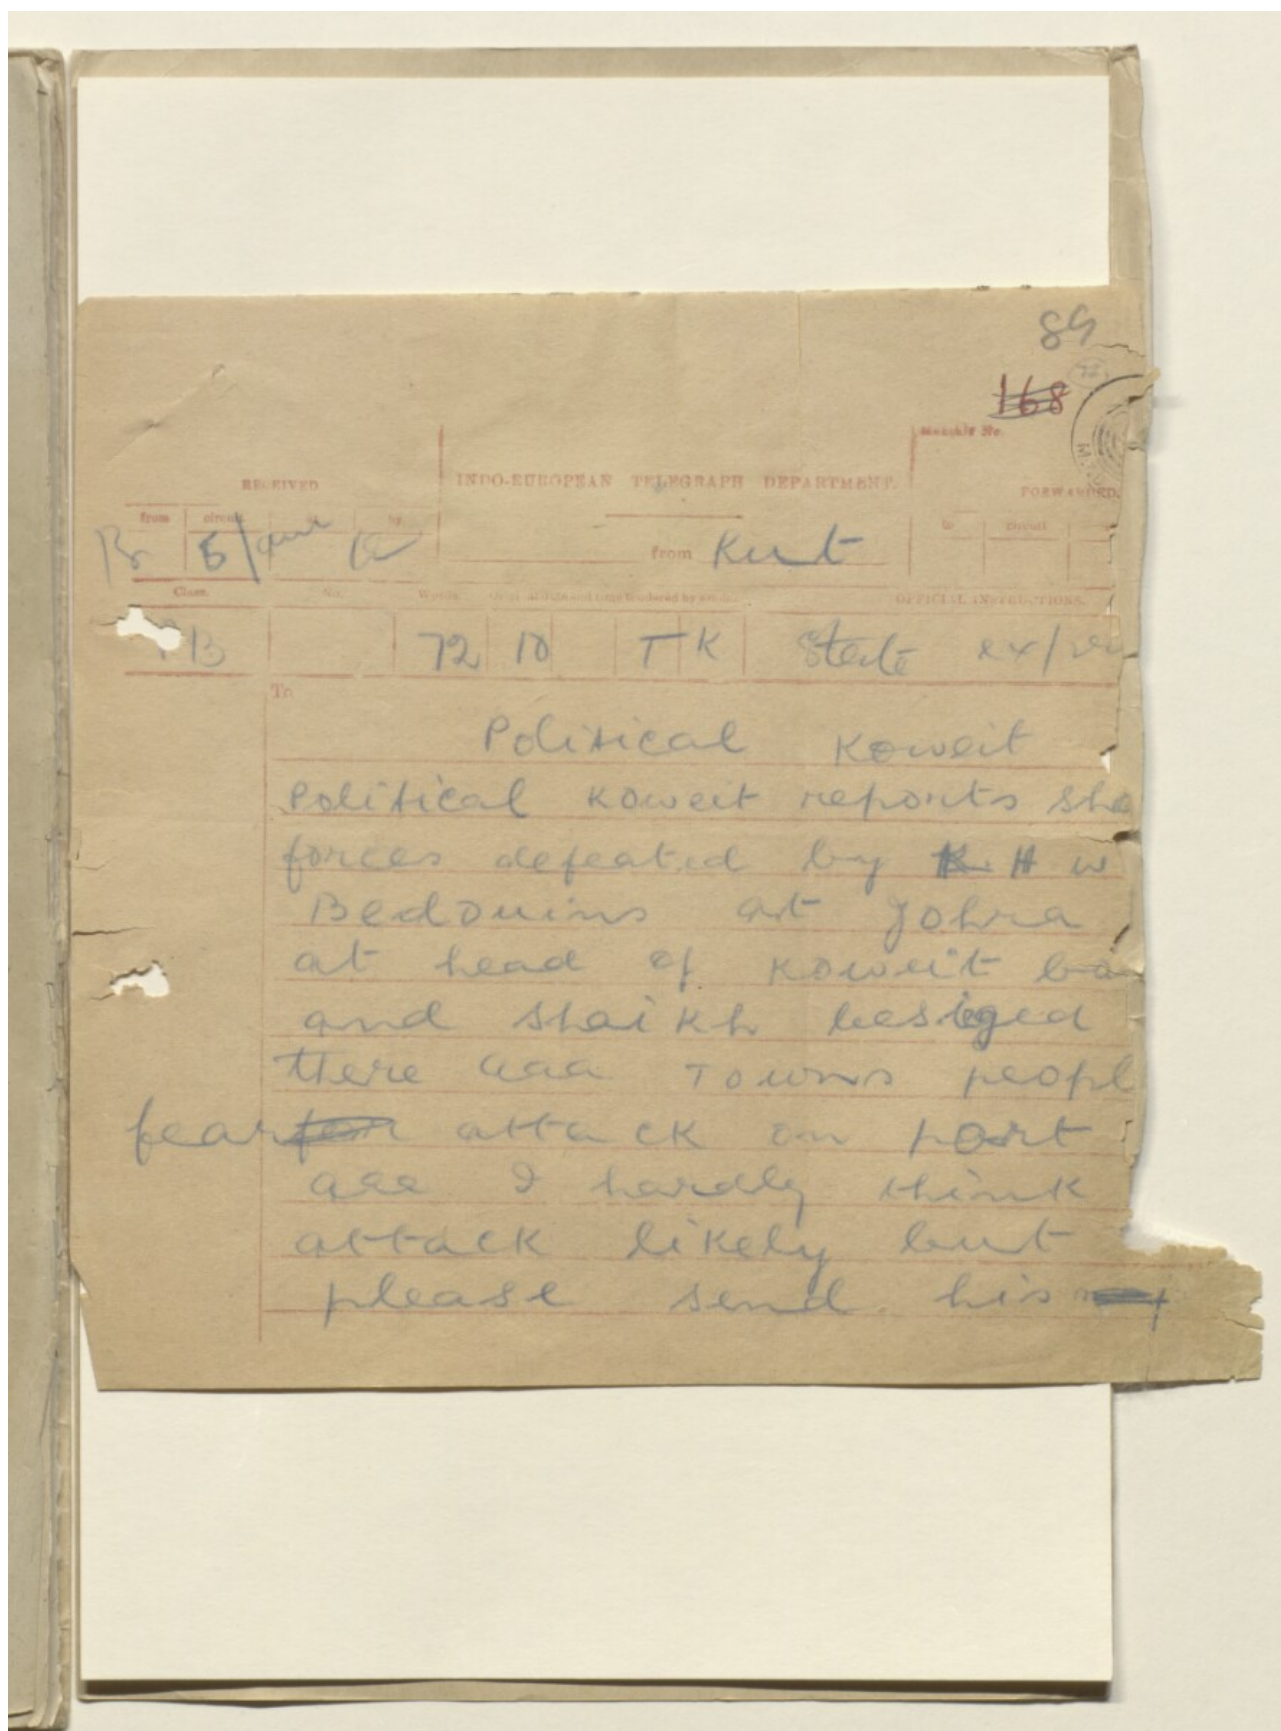 89
168
Monthly No.
RECEIVED
INDO-EUROPEAN TELEGRAPH DEPARTMENT.
FORWARDED.
from circuit at by
to circuit
B 5/
from Kut
Class. No. Words.
OFFICIAL INSTRUCTIONS.
B 72 10 T K State
To
Political Koweit
Political Koweit reports she
forces defeated by H w
Bedouins at Johra
at head of Koweit ba
and shaikh besieged
there aaa Towns peopl
fear attack on port
aaa I hardly think
attack likely but
please send his